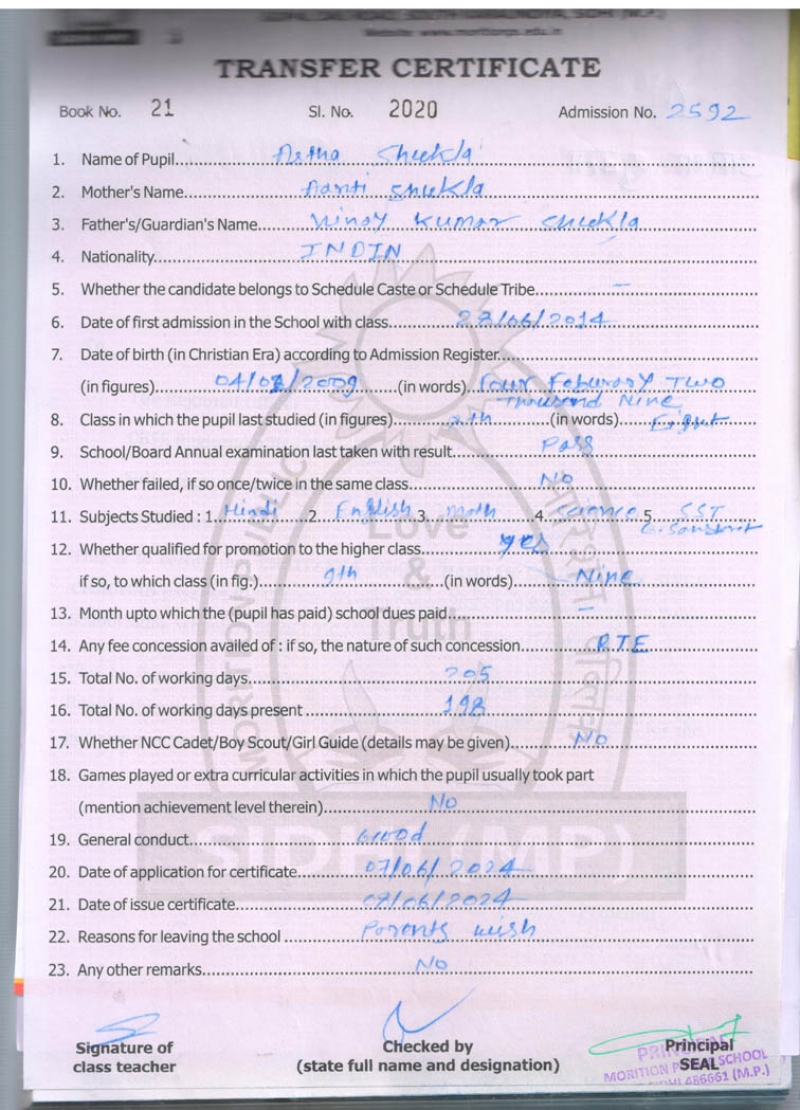 Website: www.moritionps.edu.in
TRANSFER CERTIFICATE
Book No. 21 Sl. No. 2020 Admission No. 2592
1. Name of Pupil Astha Shukla
2. Mother's Name Aarti Shukla
3. Father's/Guardian's Name Vinay Kumar Shukla
4. Nationality INDIN
5. Whether the candidate belongs to Schedule Caste or Schedule Tribe –
6. Date of first admission in the School with class 28/06/2014
7. Date of birth (in Christian Era) according to Admission Register
(in figures) 04/02/2009 (in words) Four Feburary Two
Thousand Nine
8. Class in which the pupil last studied (in figures) 8th (in words) Eight
9. School/Board Annual examination last taken with result Pass
10. Whether failed, if so once/twice in the same class No
11. Subjects Studied : 1. Hindi 2. English 3. math 4. Science 5. SST
6. Sanskrit
12. Whether qualified for promotion to the higher class yes
if so, to which class (in fig.) 9th (in words) Nine
13. Month upto which the (pupil has paid) school dues paid –
14. Any fee concession availed of : if so, the nature of such concession RTE
15. Total No. of working days 205
16. Total No. of working days present 198
17. Whether NCC Cadet/Boy Scout/Girl Guide (details may be given) No
18. Games played or extra curricular activities in which the pupil usually took part
(mention achievement level therein) No
19. General conduct Good
20. Date of application for certificate 07/06/2024
21. Date of issue certificate 07/06/2024
22. Reasons for leaving the school Parents wish
23. Any other remarks No
Love
&
Truth
SIDHI (MP)
Signature of
class teacher
Checked by
(state full name and designation)
Principal
SEAL
PRINCIPAL
MORITION PUBLIC SCHOOL
SIDHI 486661 (M.P.)